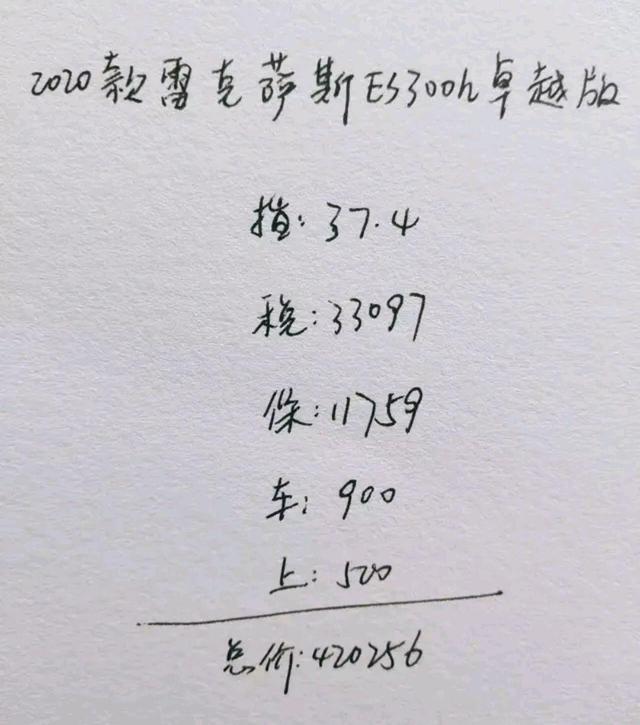 2020款雷克萨斯ES300h卓越版
指: 37.4
税: 33097
保: 11759
车: 900
上: 500
总价: 420256